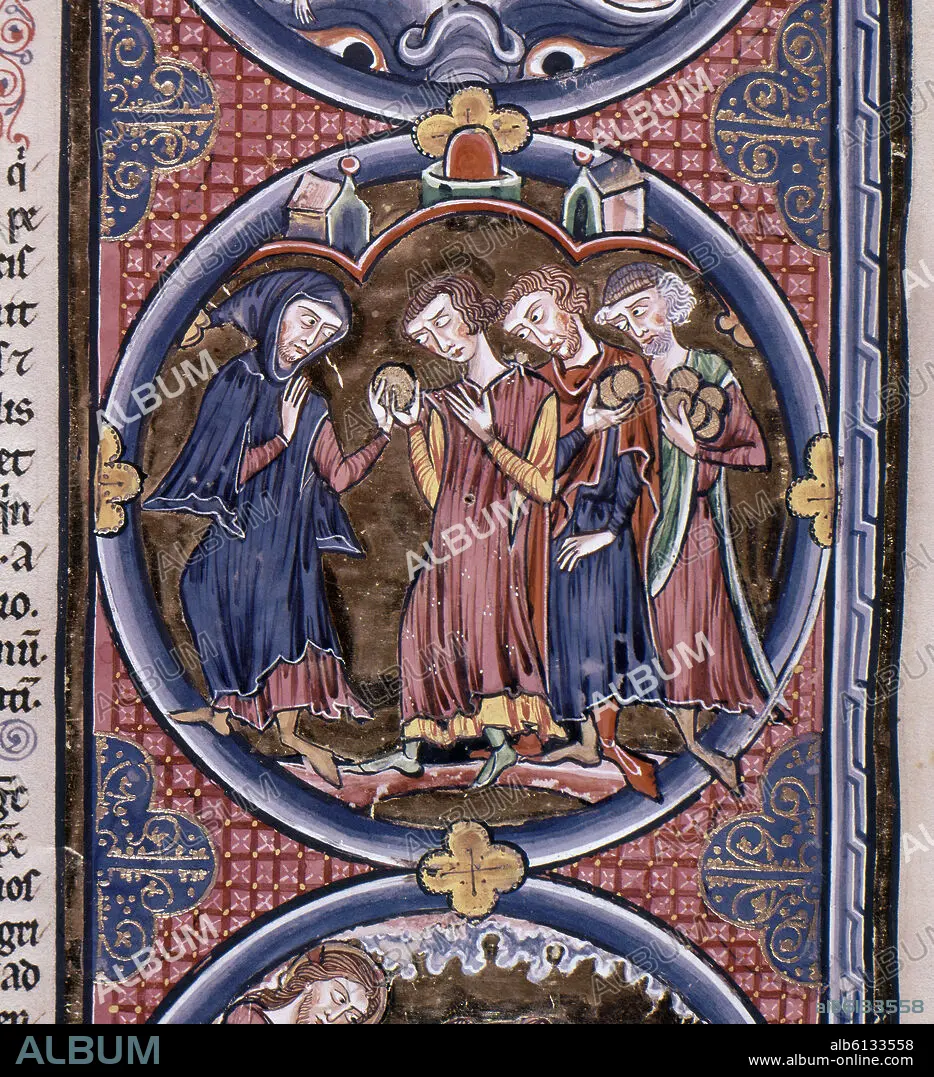 q
pe
cis
uit
lis
et
qin
. a
uo.
nū.
tū.
gē
pē
nos
gri
ad
en
ALBUM
alb6133558
ALBUM
alb6133558
www.album-online.com